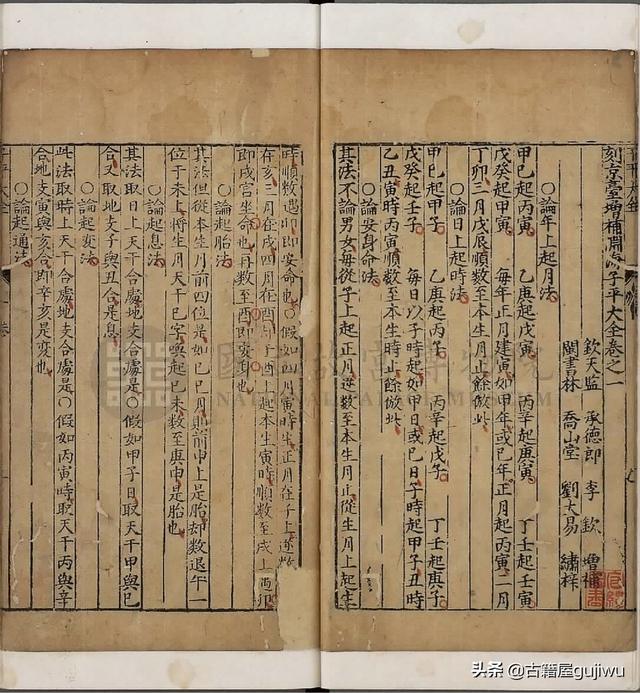 刻京臺增補淵海子平大全卷之一
欽天監 承德郎 李 欽 增補
閩書林 喬山堂 劉大易 繡梓
○論年上起月法
甲已起丙寅 乙庚起戊寅 丙辛起庚寅 丁壬起壬寅
戊癸起甲寅 每年正月建寅如甲年或已年正月起丙寅二月
丁卯三月戊辰順數至本生月止餘倣此
○論日上起時法
甲已起甲子 乙庚起丙子 丙辛起戊子 丁壬起庚子
戊癸起壬子 每日以子時起如甲日或已日子時起甲子丑時
乙丑寅時丙寅順數至本生時止餘倣此
○論安身命法
其法不論男女每從子上起正月逆數至本生月止從生月上起生
時順數遇卯即安命也○假如四月寅時生正月在子上逆
在亥三月在戌四月在酉即于酉上起本生寅時順數至戌上酉卯
即戌宮坐命也再數至酉即安身也
○論起胎法
其法但從本生月前四位是如已巳月則前申上是胎却數退午一
位于未上將生月天干巳字喚起已未數至庚申是胎也
○論起息法
其法取日上天干合處地支合處是○假如甲子日取天干甲與已
合又取地支子與丑合是息
○論起变法
此法取時上天干合處地支合處是○假如丙寅時取天干丙與辛
合地支寅與亥合即辛亥是变也
○論起通法
子平大全
一卷
頭条 @古籍屋gujiwu